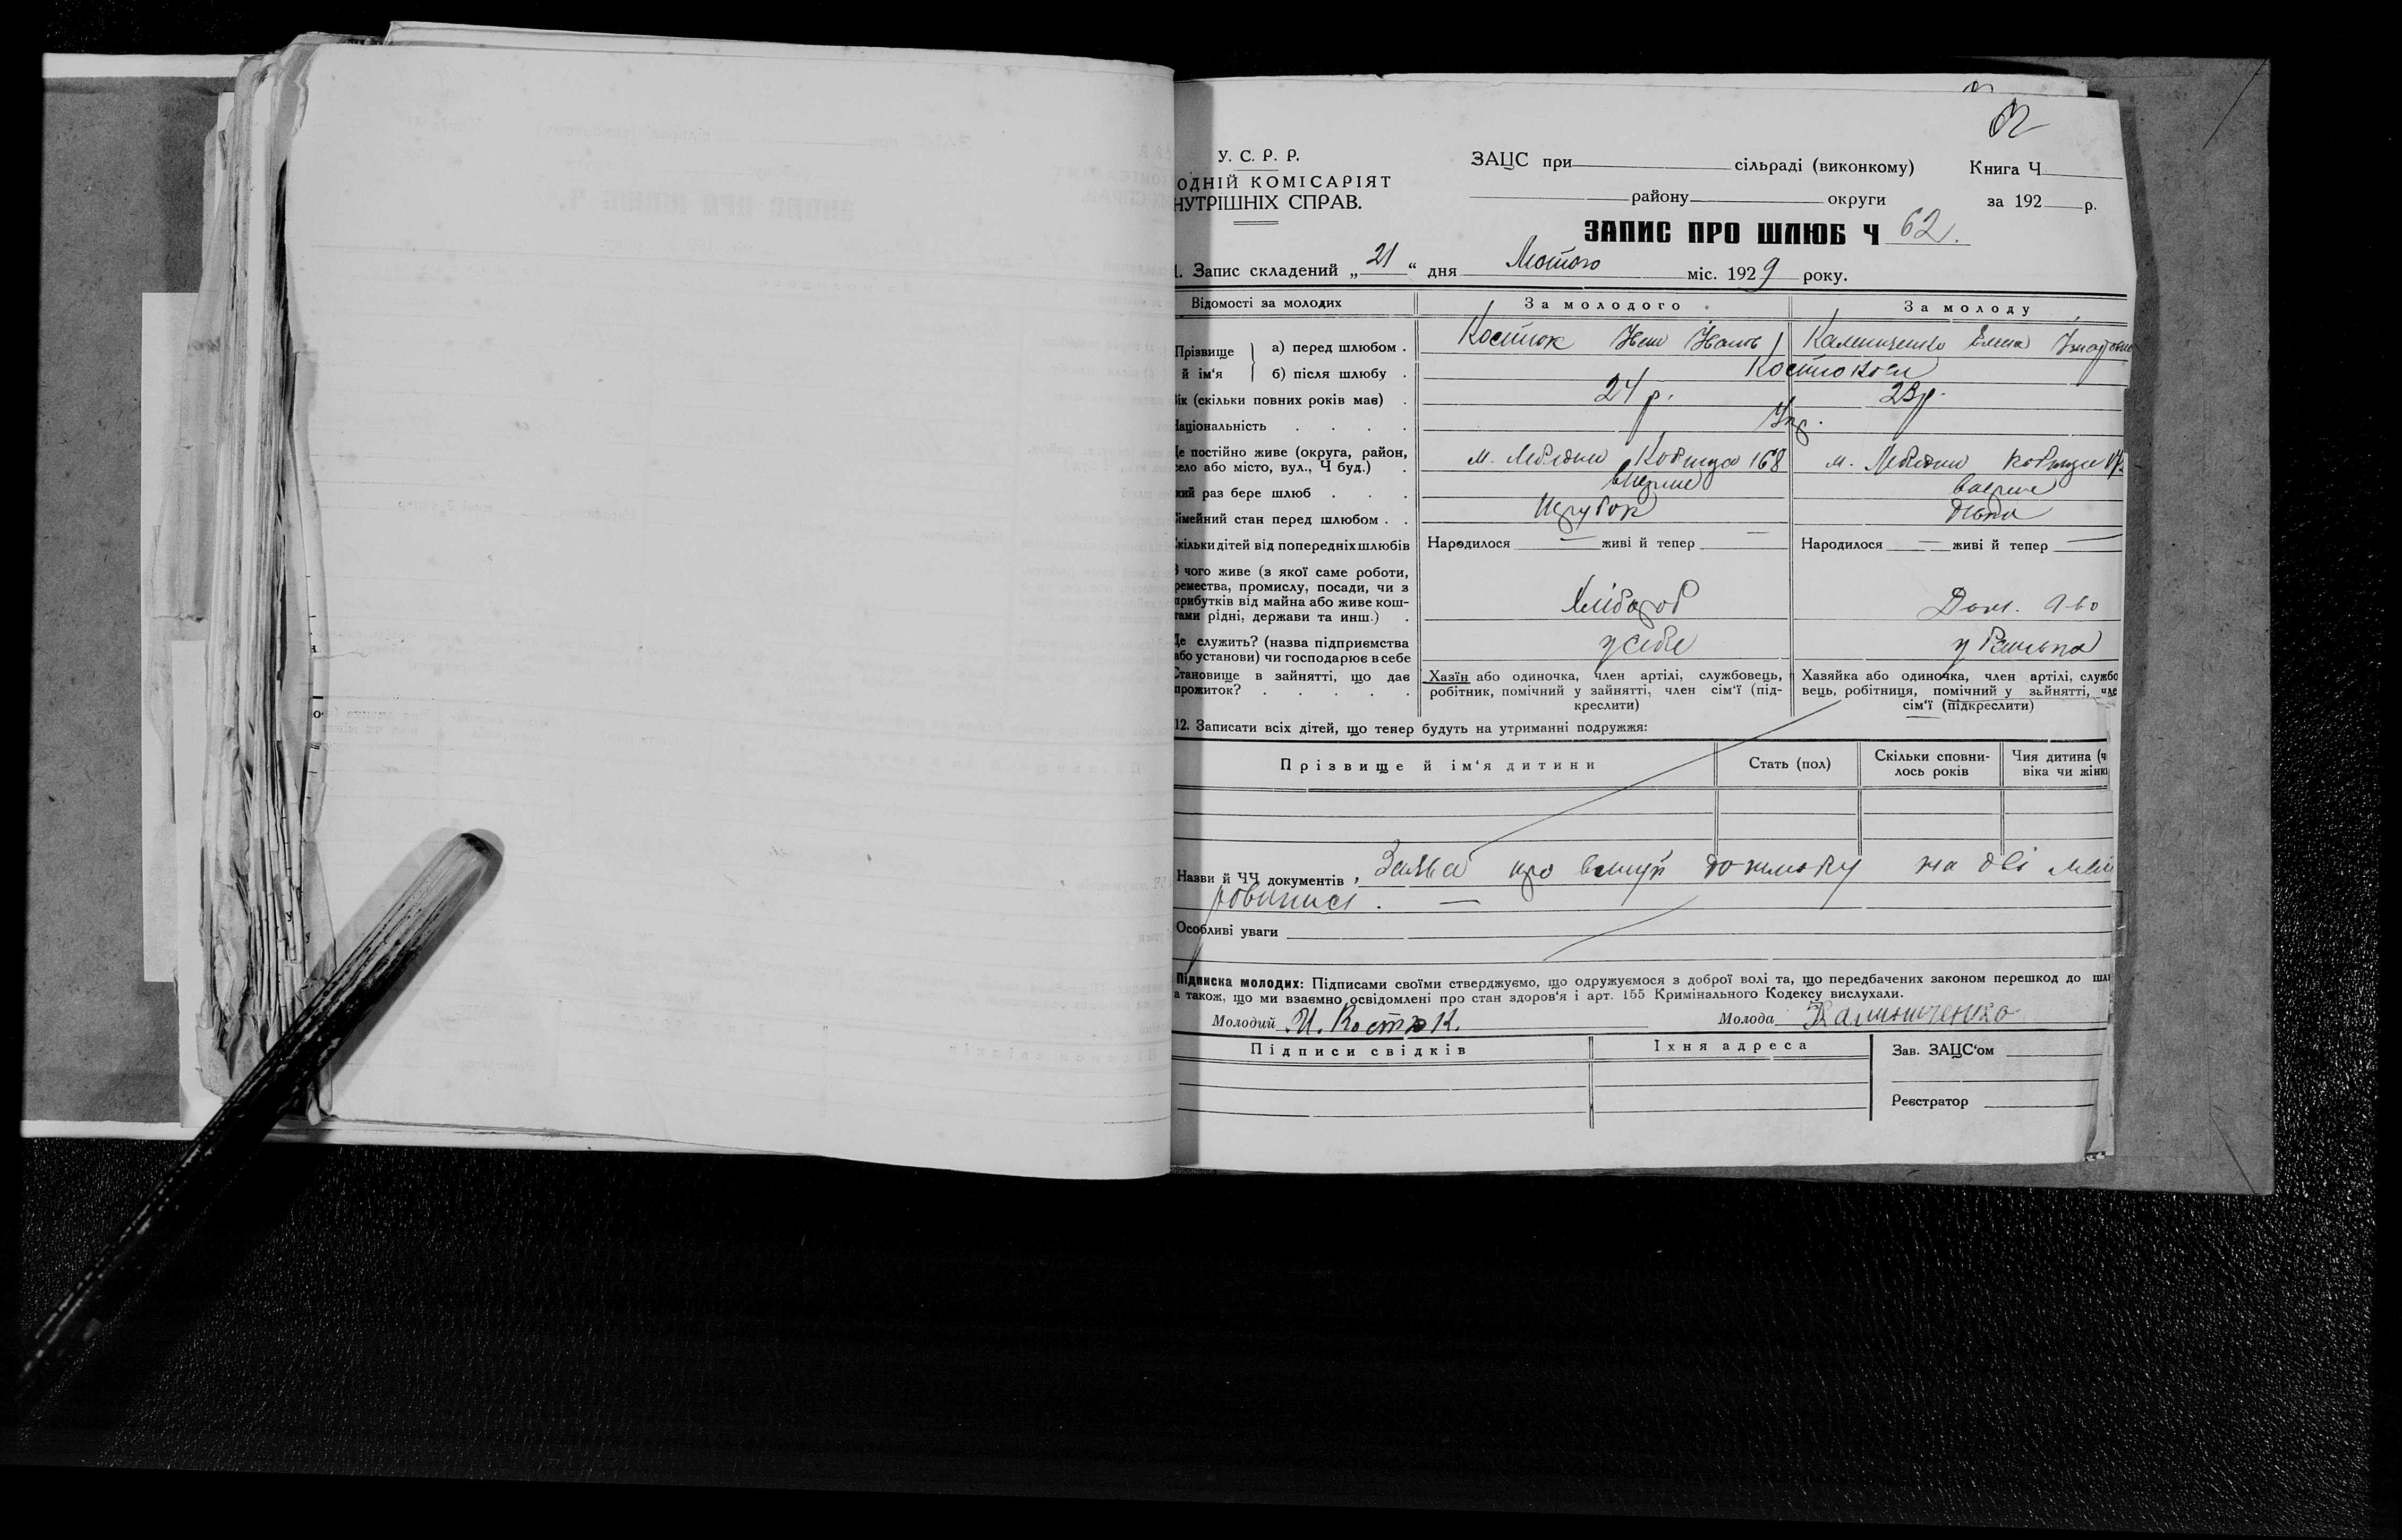 62
У. С. Р. Р.
ОДНІЙ КОМІСАРІЯТ
НУТРІШНІХ СПРАВ.
ЗАЦС при сільраді (виконкому) Книга Ч
району округи за 192 р.
ЗАПИС ПРО ШЛЮБ Ч 62.
1. Запис складений „21“ дня Лютого міс. 1929 року.
Відомості за молодих За молодого За молоду
Прізвище й ім‘я а) перед шлюбом . Костюк Іван Калениченко Елена
б) після шлюбу . Костюкови
ік (скільки повних років має) . 24 р. 23 р.
Національність . . . . Укр.
Де постійно живе (округа, район, село або місто, вул., Ч буд.) . м. Лебедин Кобижча 168 м. Лебедин
кий раз бере шлюб . . . вперше вперше
Сімейний стан перед шлюбом . . Парубок дівка
Скільки дітей від попередніх шлюбів Народилося — живі й тепер — Народилося — живі й тепер —
З чого живе (з якої саме роботи,
ремества, промислу, посади, чи з
прибутків від майна або живе кош-
тами рідні, держави та инш.) . Хлібороб Дом. г-во
Де служить? (назва підприємства
або установи) чи господарює в себе у себе у батька
Становище в зайнятті, що дає
прожиток? . . . . .
Хазїн або одиночка, член артілі, службовець,
робітник, помічний у зайнятті, член сім‘ї (під-
креслити)
Хазяйка або одиночка, член артілі, службо
вець, робітниця, помічний у зайнятті, чле
сім‘ї (підкреслити)
12. Записати всіх дітей, що тепер будуть на утриманні подружжя:
Прізвище й ім‘я дитини Стать (пол) Скільки сповни-лось років Чия дитина (ч віка чи жінк
Назви й ЧЧ документів , Заява про вступ до шлюбу на дві
Особливі уваги
Підписка молодих: Підписами своїми стверджуємо, що одружуємося з доброї волі та, що передбачених законом перешкод до шл
а також, що ми взаємно освідомлені про стан здоров‘я і арт. 155 Кримінального Кодексу вислухали.
Молодий И. Костюк. Молода Калиниченко
Підписи свідків Їхня адреса Зав. ЗАЦС‘ом
Реєстратор